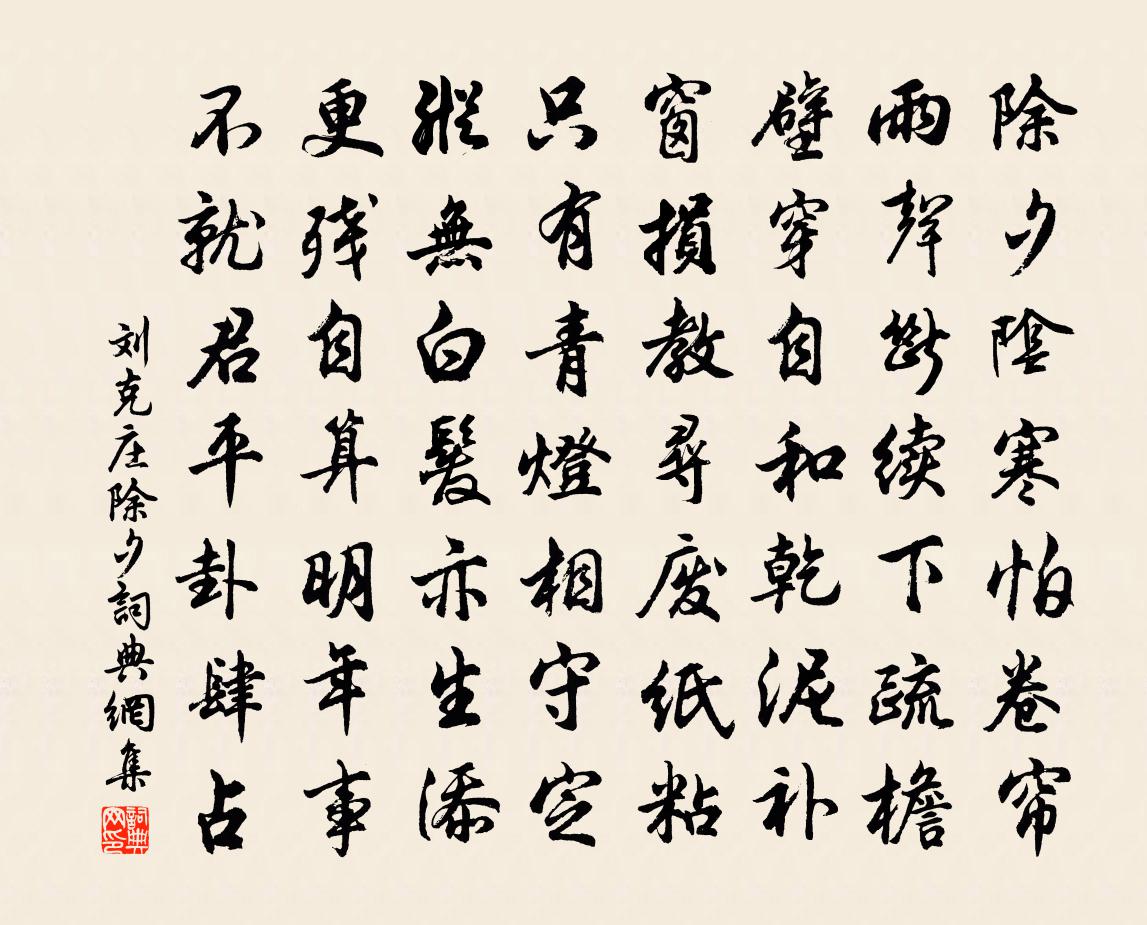 除夕陰寒怕卷帘
雨聲斷續下疏檐
壁穿自和乾泥补
窗損教尋废紙粘
只有青燈相守定
縱無白髮亦生添
更残自算明年事
不就君平卦肆占
刘克庄除夕詞典網集
詞典网印